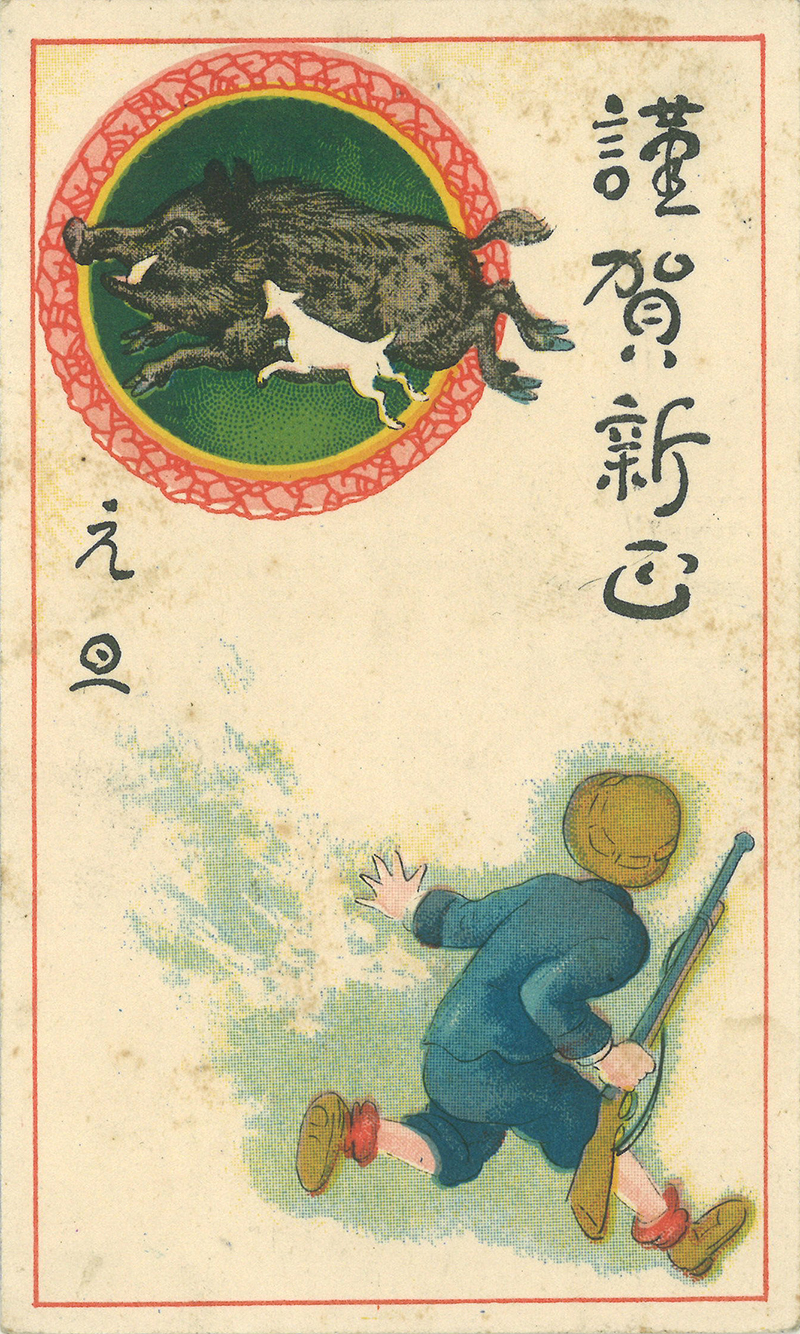 謹賀新正
元旦